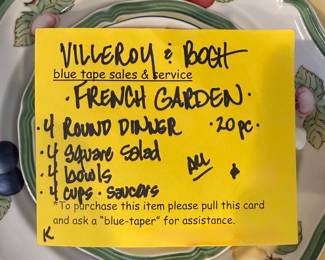 VILLEROY & BOCH
blue tape sales & service
· FRENCH GARDEN ·
· 4 ROUND DINNER · 20 pc ·
· 4 Square Salad
· 4 bowls
· 4 cups · saucers
ALL
*To purchase this item please pull this card
and ask a "blue-taper" for assistance.
K